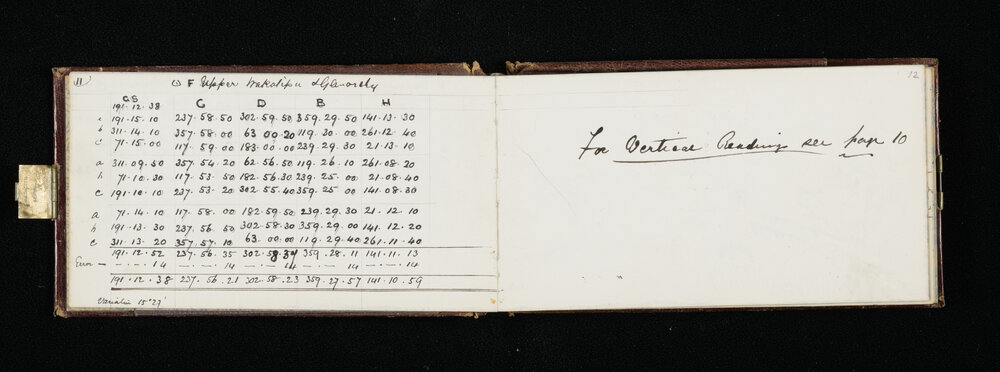 11
F Upper Wakatipu & Glenorchy
GS
191·12·38 C D B H
a 191·15·10 237·58·50 302·59·50 359·29·50 141·13·30
b 311·14·10 357·58·00 63·00·20 119·30·00 261·12·40
c 71·15·00 117·59·00 183·00·00 239·29·30 21·13·10
a 311·09·50 357·54·20 62·56·50 119·26·10 261·08·20
b 71·10·30 117·53·50 182·56·30 239·25·00 21·08·40
c 191·10·10 237·53·20 302·55·40 359·25·00 141·08·30
a 71·14·10 117·58·00 182·59·50 239·29·30 21·12·10
b 191·13·30 237·56·50 302·58·30 359·29·00 141·12·20
c 311·13·20 357·57·10 63·00·00 119·29·40 261·11·40
191·12·52 237·56·35 302·58·37 359·28·11 141·11·13
Error — — · — 14 — · — · 14 — · — · 14 — · — · 14 — · — · 14
191·12·38 237·56·21 302·58·23 359·27·57 141·10·59
Variation 15°29'
12
For Vertical Readings see page 10